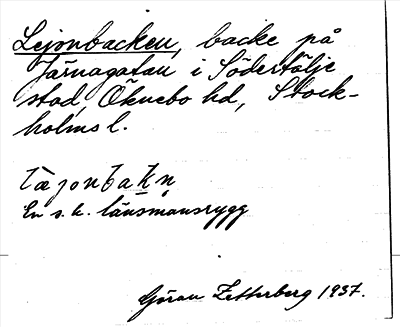 Lejonbacken, backe på
Järnagatan i Södertälje
stad, Öknebo hd, Stock-
holms l.
En s. k. länsmansrygg
Göran Zetterberg 1937.